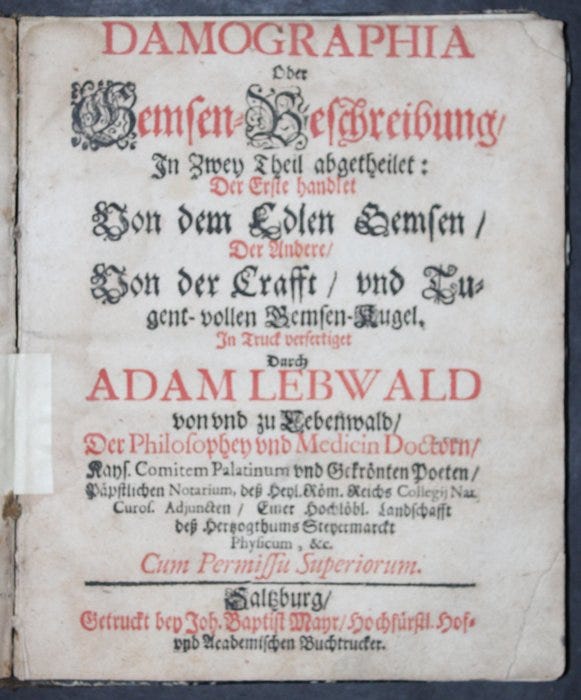 DAMOGRAPHIA
Oder
Gemsen-Beschreibung/
In Zwey Theil abgetheilet:
Der Erste handlet
Von dem Edlen Gemsen /
Der Andere/
Von der Crafft / vnd Tu-
gent-vollen Gemsen-Kugel.
In Truck verfertiget
Durch
ADAM LEBWALD
von vnd zu Lebenwald/
Der Philosophey vnd Medicin Doctorn/
Kays. Comitem Palatinum vnd Gekrönten Poeten/
Päpstlichen Notarium, deß Heyl. Röm. Reichs Collegij Nat.
Curos. Adjuncten / Einer Hochlöbl. Landschafft
deß Hertzogthums Steyermarckt
Physicum, &c.
Cum Permissu Superiorum.
Saltzburg/
Getruckt bey Joh. Baptist Mayr/ Hochfürstl. Hof-
vnd Academischen Buchtrucker.